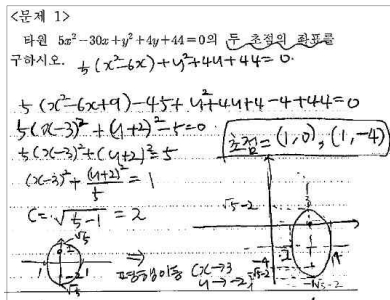 <문제 1>
타원 5x²-30x+y²+4y+44=0의 두 초점의 좌표를
구하시오. 5(x²-6x)+y²+4y+44=0.
5(x²-6x+9)-45+y²+4y+4-4+44=0
5(x-3)²+(y+2)²-5=0.
초점=(1,0), (1,-4)
5(x-3)²+(y+2)²=5
(x-3)²+(y+2)²/5=1
√5-2
C=√5-1=2
√5
1 -2 1
-√5
⇒ 평행이동 (x→3
y→-2)
2 4
-4
-√5-2